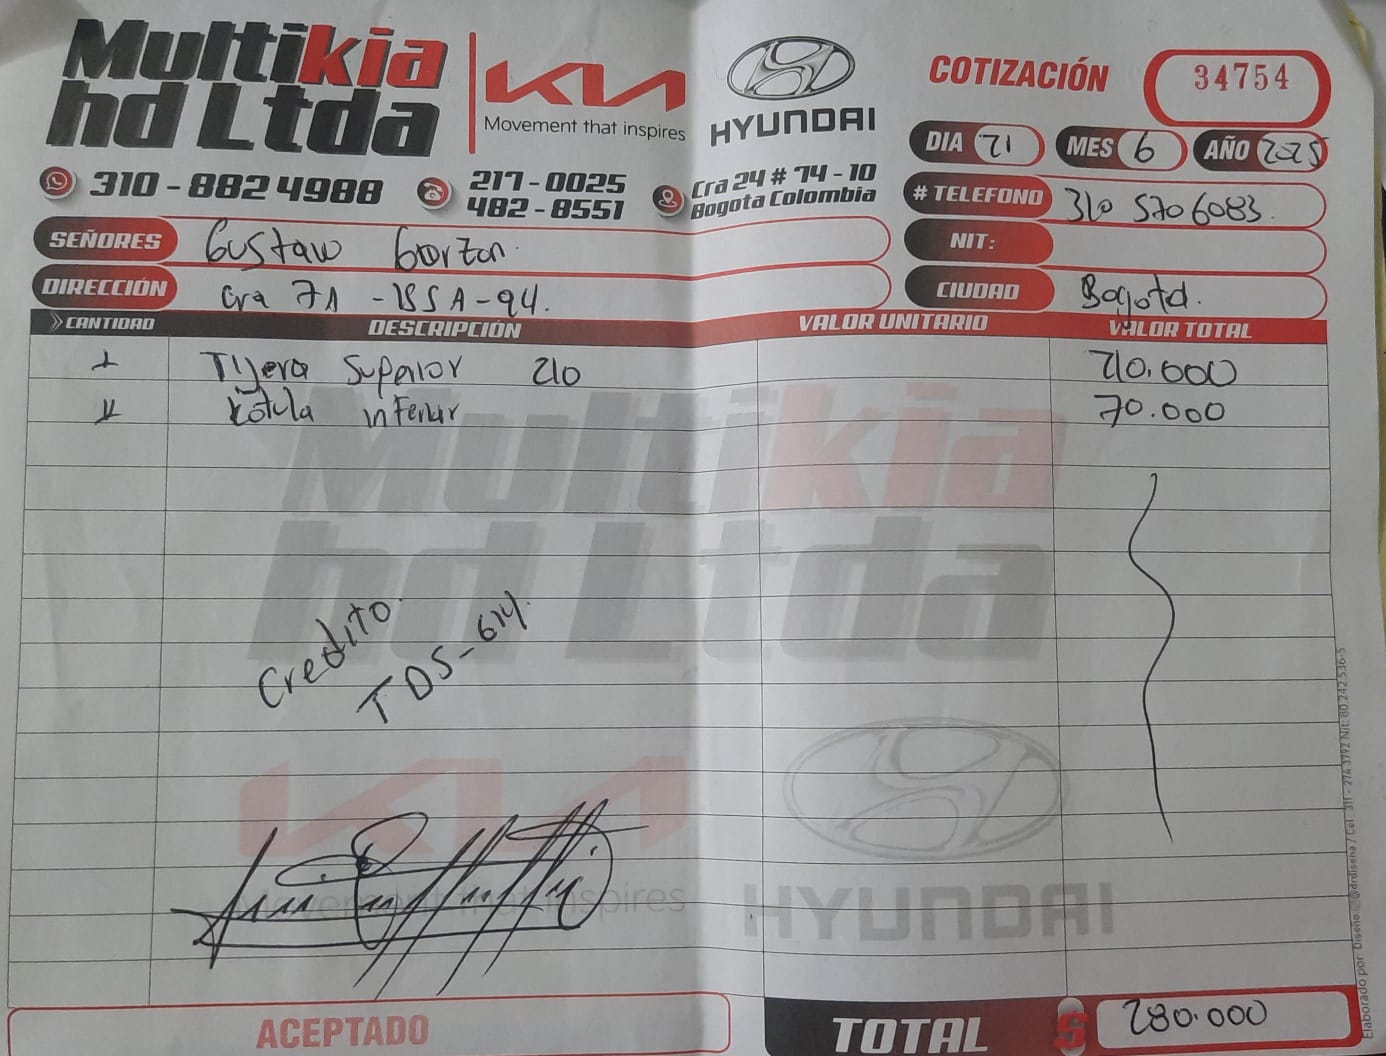 Multikia
hd Ltda
KIA
Movement that inspires
HYUNDAI
COTIZACIÓN
34754
DIA 21 MES 6 AÑO 2025
310 - 882 4988
217 - 0025
482 - 8551
Cra 24 # 74 - 10
Bogota Colombia
# TELEFONO 310 5706083
SEÑORES Gustavo Gorzon
NIT:
DIRECCIÓN Cra 7A - 155A - 94.
CIUDAD Bogotá.
CANTIDAD DESCRIPCIÓN VALOR UNITARIO VALOR TOTAL
1 Tijera Superior 210 210.000
Rótula inferiur 70.000
Multikia
hd Ltda
Credito.
TDS-614.
KIA
Movement that inspires
HYUNDAI
ACEPTADO
TOTAL $ 280.000
Elaborado por: Diseño: @drdisena / Cel.: 311 - 274 3792 Nit: 80.242.536-5